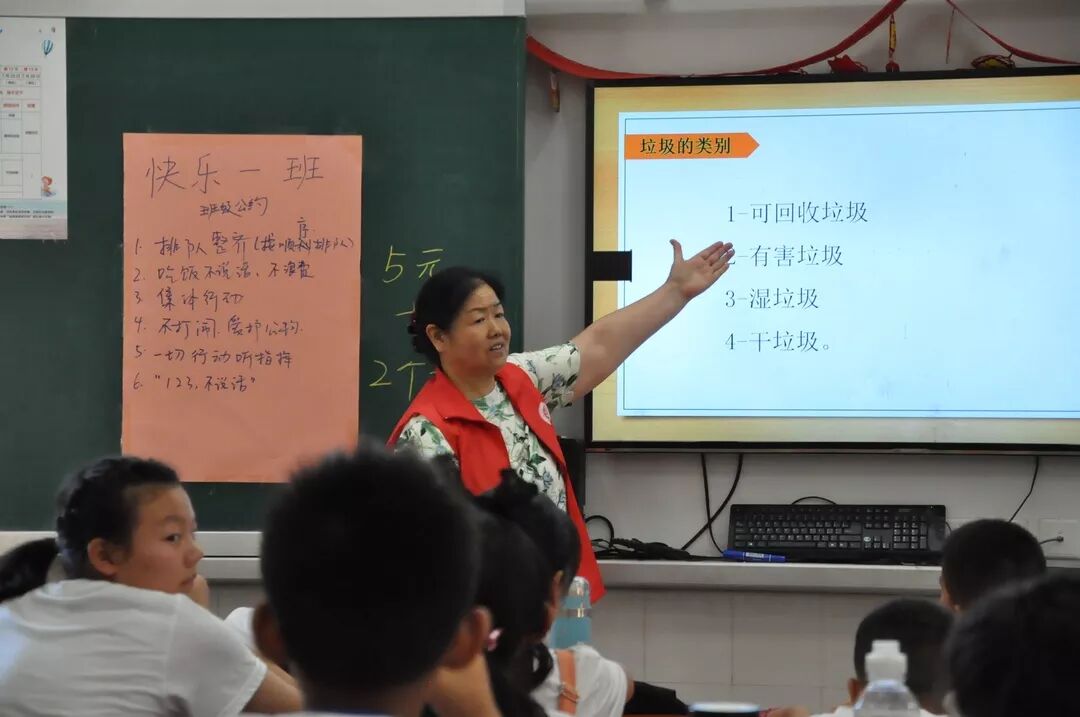 快乐一班
班级公约
1. 排队整齐(按顺序排队)
2. 吃饭不说话、不浪费
3. 集体行动
4. 不打闹、爱护公物.
5. 一切行动听指挥
6. "123,不说话"
5元
2个
垃圾的类别
1-可回收垃圾
2-有害垃圾
3-湿垃圾
4-干垃圾。